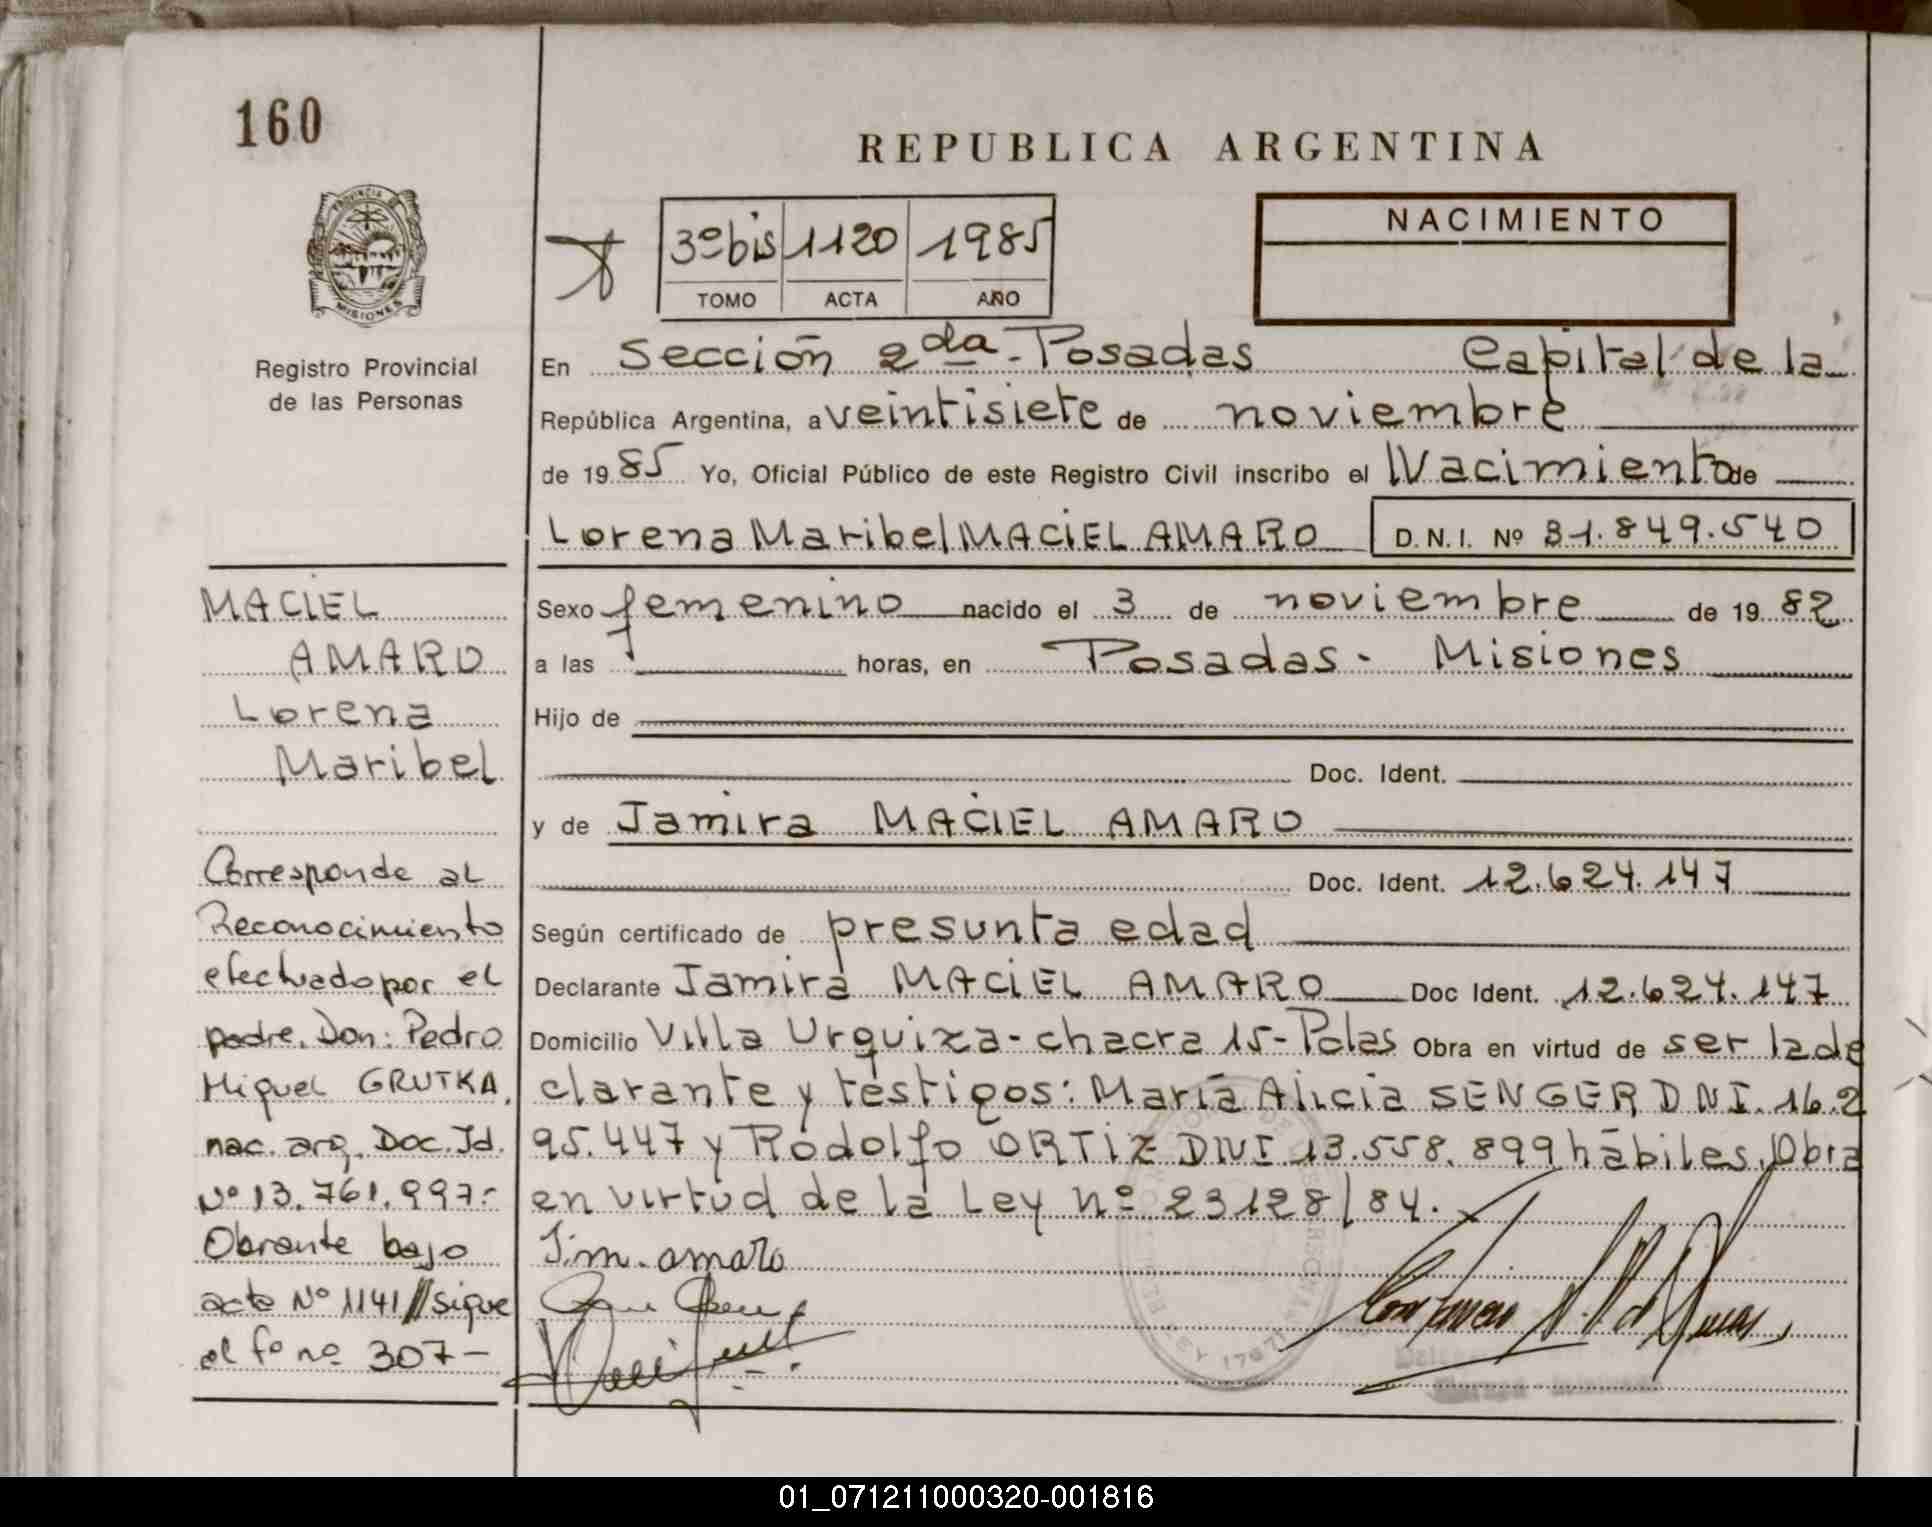 160
REPUBLICA ARGENTINA
PROVINCIA DE
MISIONES
3º bis 1120 1985
TOMO ACTA AÑO
NACIMIENTO
Registro Provincial
de las Personas
En Sección 2da - Posadas Capital de la
República Argentina, a veintisiete de noviembre
de 1985 Yo, Oficial Público de este Registro Civil inscribo el Nacimiento de
Lorena Maribel MACIEL AMARO D.N.I. Nº 31.849.540
Sexo femenino nacido el 3 de noviembre de 1982
a las horas, en Posadas - Misiones
Hijo de
Doc. Ident.
y de Jamira MACIEL AMARO
Doc. Ident. 12.624.147
Según certificado de presunta edad
Declarante Jamira MACIEL AMARO Doc Ident. 12.624.147
Domicilio Villa Urquiza - chacra 15 - Pdas Obra en virtud de ser la de
clarante y testigos: María Alicia SENGER DNI. 16.2
95.447 y Rodolfo ORTIZ DNI 13.558.899 hábiles. Obra
en virtud de la Ley nº 23128/84.
J.m. amaro
MACIEL
AMARO
Lorena
Maribel
Corresponde al
Reconocimiento
efectuado por el
padre. Don: Pedro
Miguel GRUTKA,
nac. arg. Doc. Id.
Nº 13.761.997-
Obrante bajo
acta Nº 1141 // sigue
al fº nº 307-
01_071211000320-001816